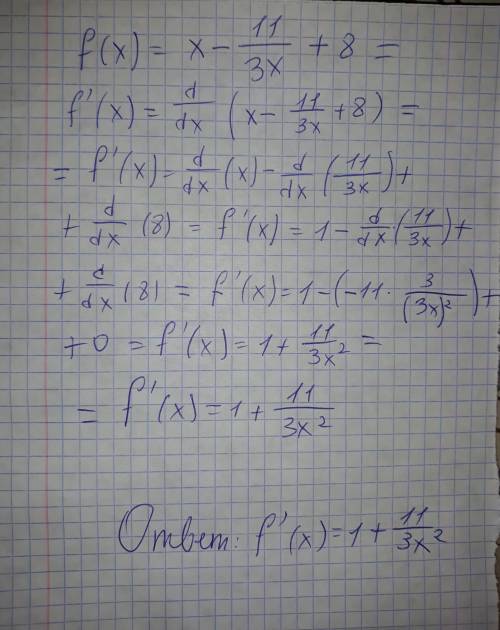 f(x) = x - 11/3x + 8 =
f'(x) = d/dx (x - 11/3x + 8) =
= f'(x) - d/dx (x) - d/dx (11/3x) +
+ d/dx (8) = f'(x) = 1 - d/dx (11/3x) +
+ d/dx (8) = f'(x) = 1 - (-11 · 3/(3x)²) +
+ 0 = f'(x) = 1 + 11/3x² =
= f'(x) = 1 + 11/3x²
Ответ: f'(x) = 1 + 11/3x²